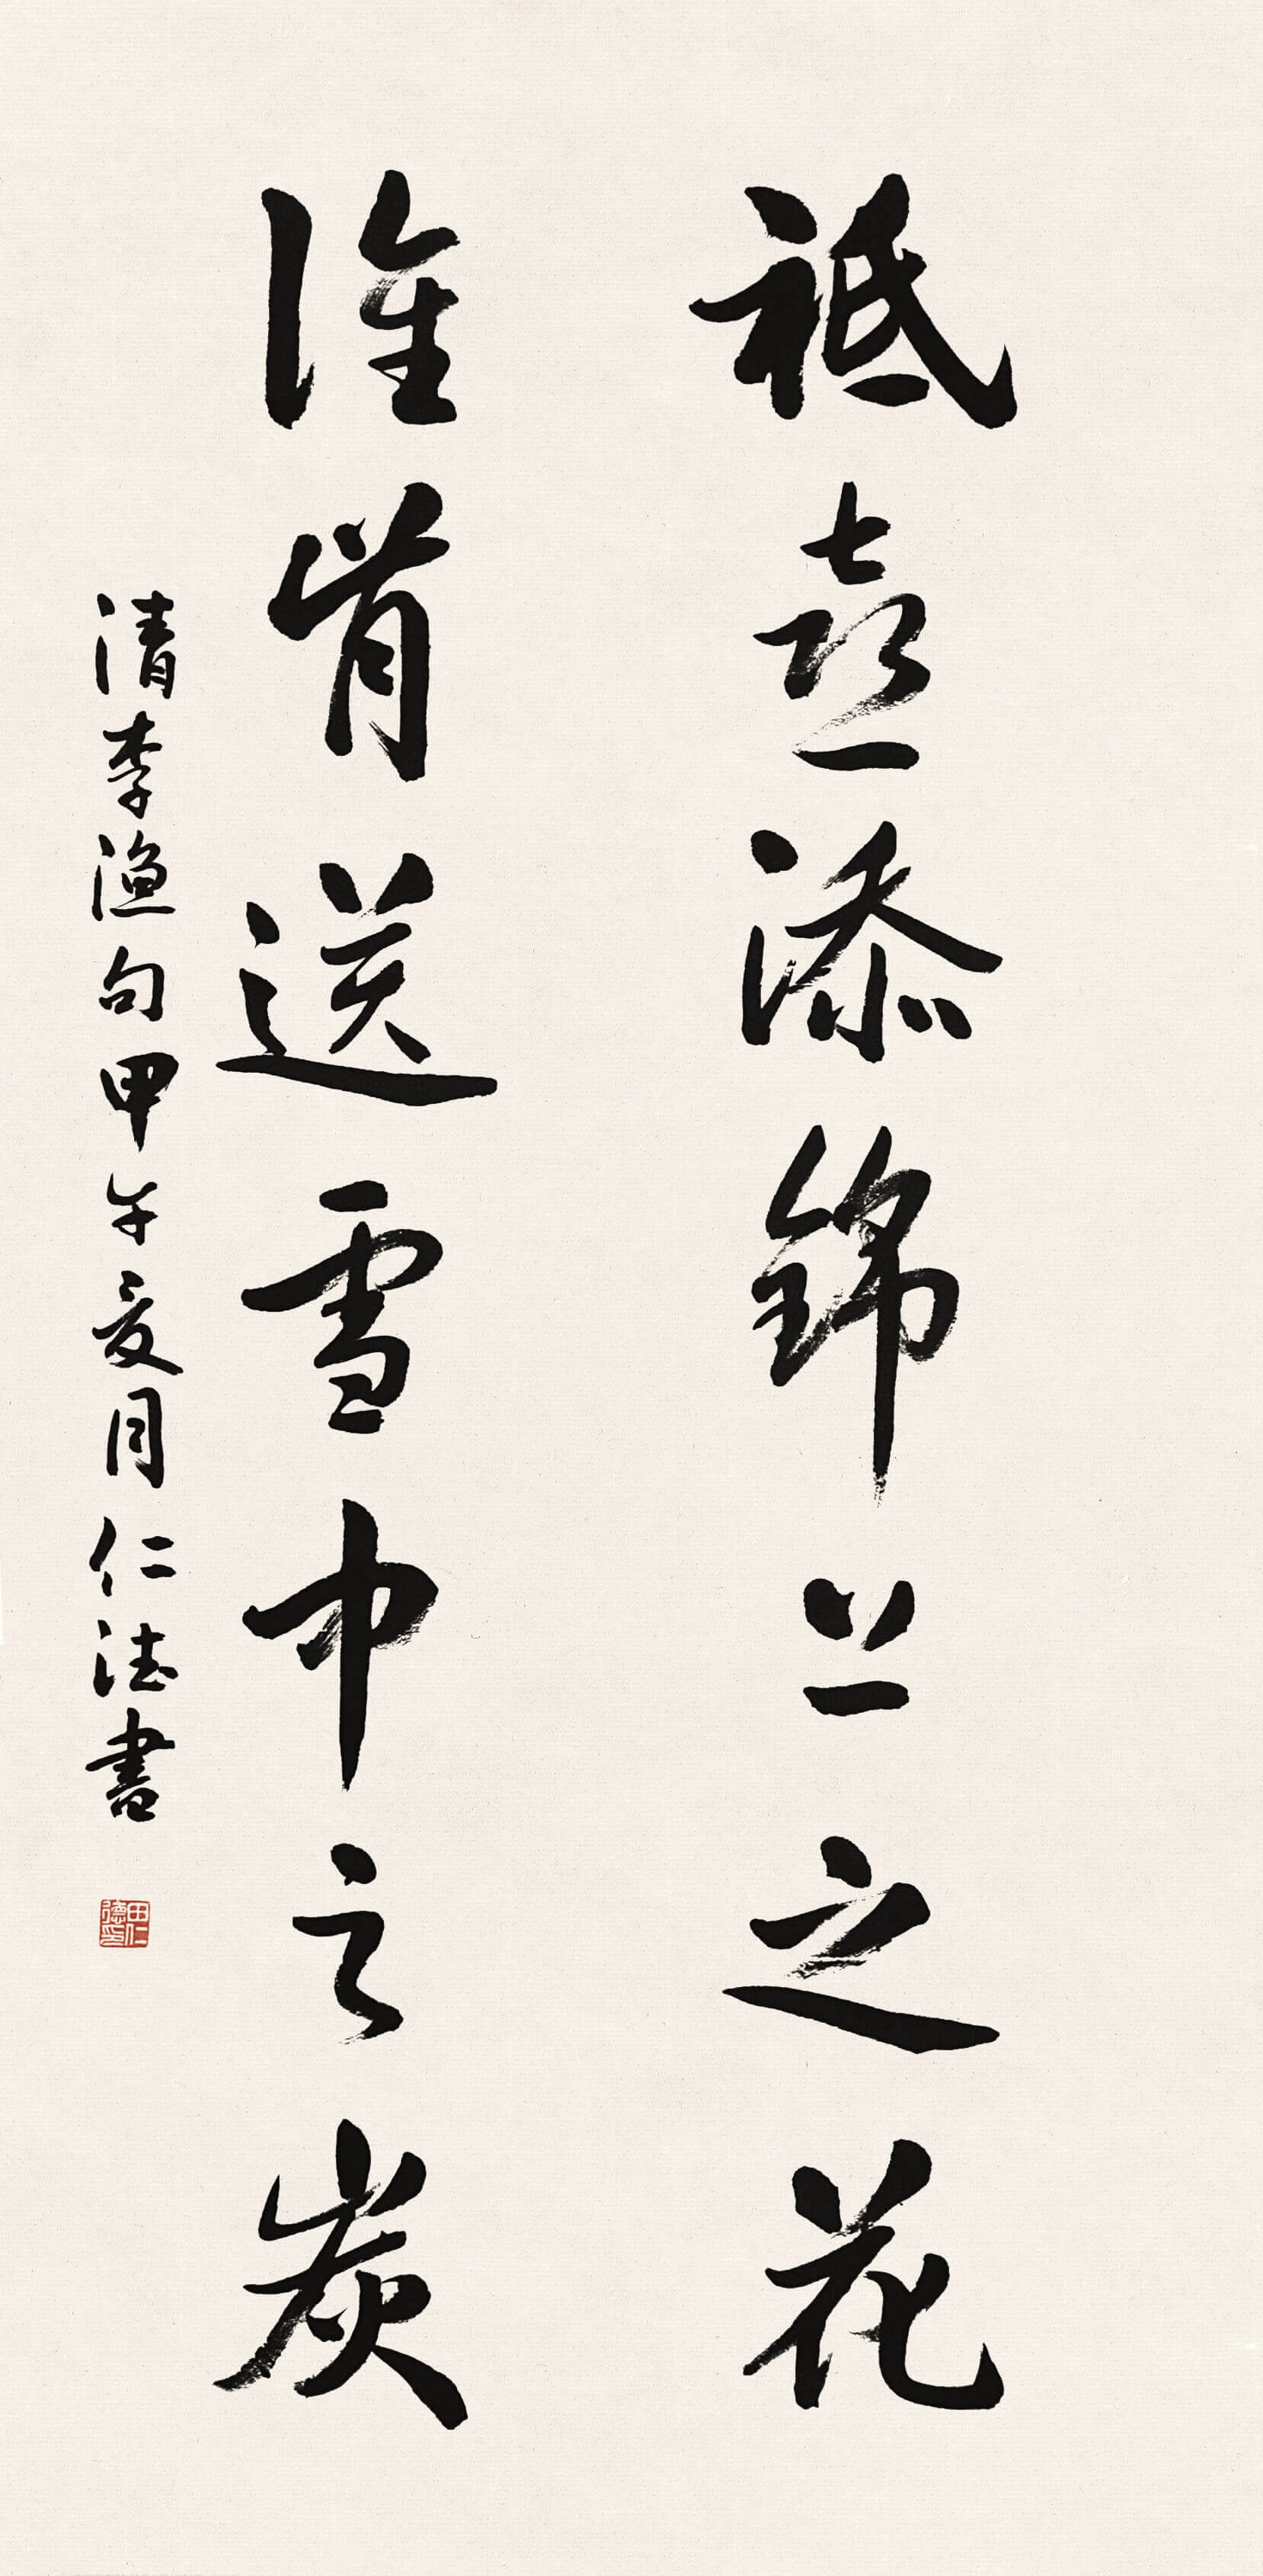 祗喜添錦上之花
誰肯送雪中之炭
清李漁句甲午夏月仁法書
田仁德印